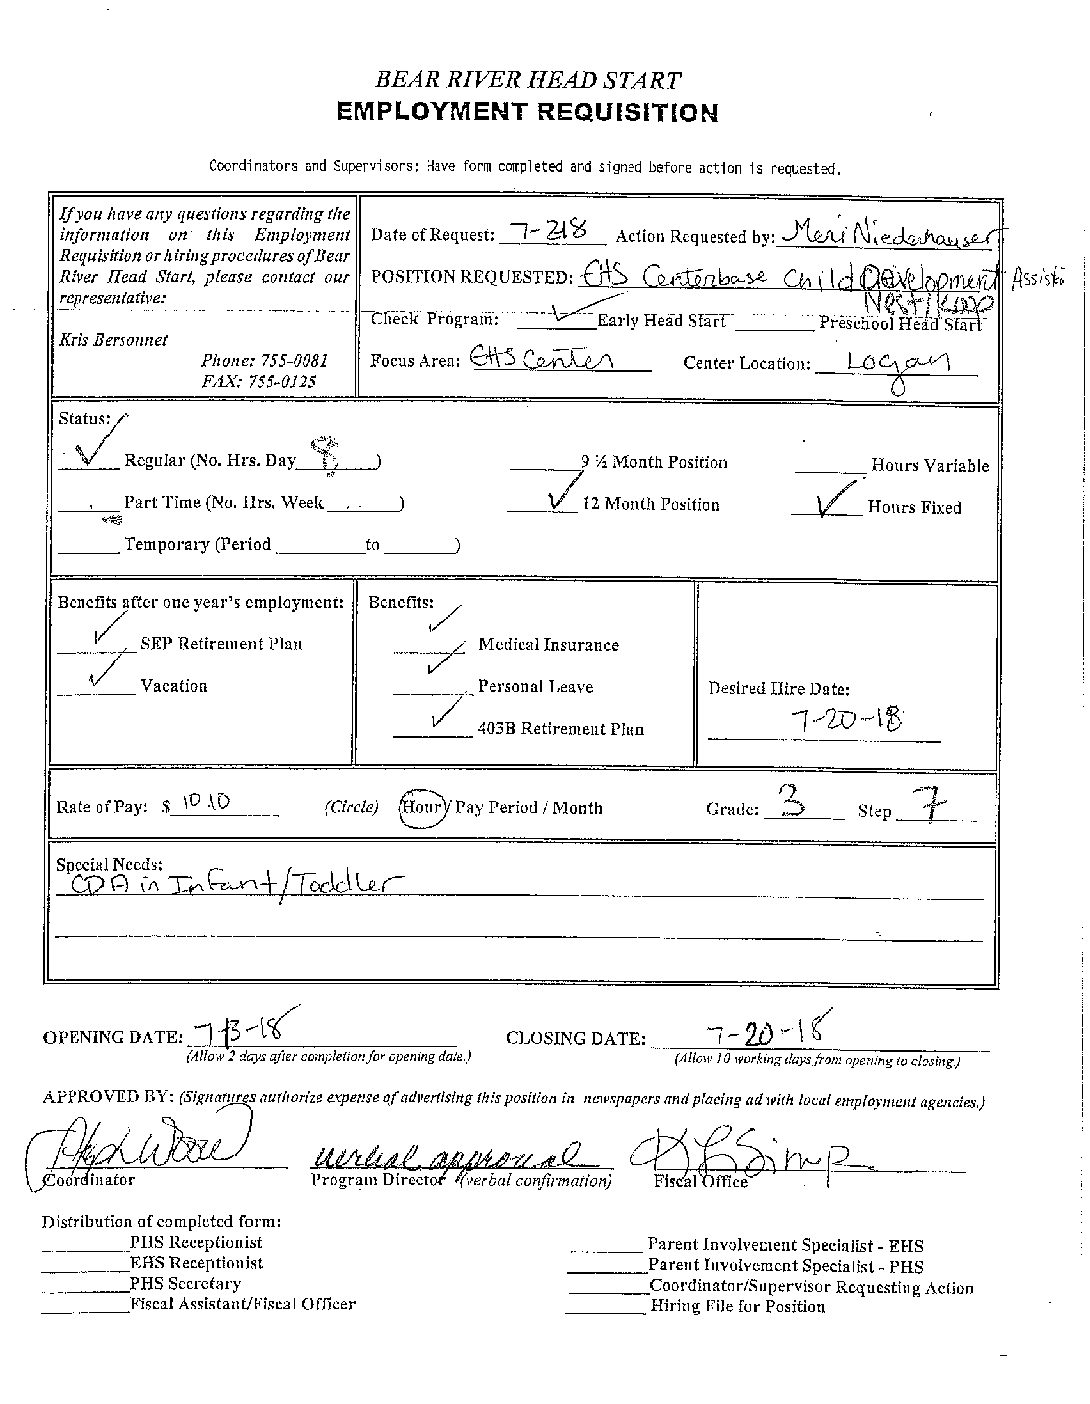 BEAR RIVER HEAD START
EMPLOYMENT REQUISITION
Coordinators and Supervisors: Have form completed and signed before action is requested.
If you have any questions regarding the
information on this Employment
Requisition or hiring procedures of Bear
River Head Start, please contact our
representative:
Kris Bersonnet
Phone: 755-0081
FAX: 755-0125
Date of Request: 7-218 Action Requested by: Meri Niederhauser
POSITION REQUESTED: EHS Centerbase Child Development Assist
Check Program: ✓ Early Head Start Preschool Head Start
Focus Area: EHS Center Center Location: Logan
Status:
✓ Regular (No. Hrs. Day 8 ) 9 ½ Month Position Hours Variable
Part Time (No. Hrs. Week ) ✓ 12 Month Position ✓ Hours Fixed
Temporary (Period to )
Benefits after one year's employment:
✓ SEP Retirement Plan
✓ Vacation
Benefits:
✓ Medical Insurance
✓ Personal Leave
✓ 403B Retirement Plan
Desired Hire Date:
7-20-18
Rate of Pay: $ 10.10 (Circle) Hour / Pay Period / Month Grade: 3 Step 7
Special Needs:
CDA in Infant/Toddler
OPENING DATE: 7-13-18 CLOSING DATE: 7-20-18
(Allow 2 days after completion for opening date.) (Allow 10 working days from opening to closing)
APPROVED BY: (Signatures authorize expense of advertising this position in newspapers and placing ad with local employment agencies.)
verbal approval
Coordinator Program Director (verbal confirmation) Fiscal Office
Distribution of completed form:
PHS Receptionist Parent Involvement Specialist - EHS
EHS Receptionist Parent Involvement Specialist - PHS
PHS Secretary Coordinator/Supervisor Requesting Action
Fiscal Assistant/Fiscal Officer Hiring File for Position